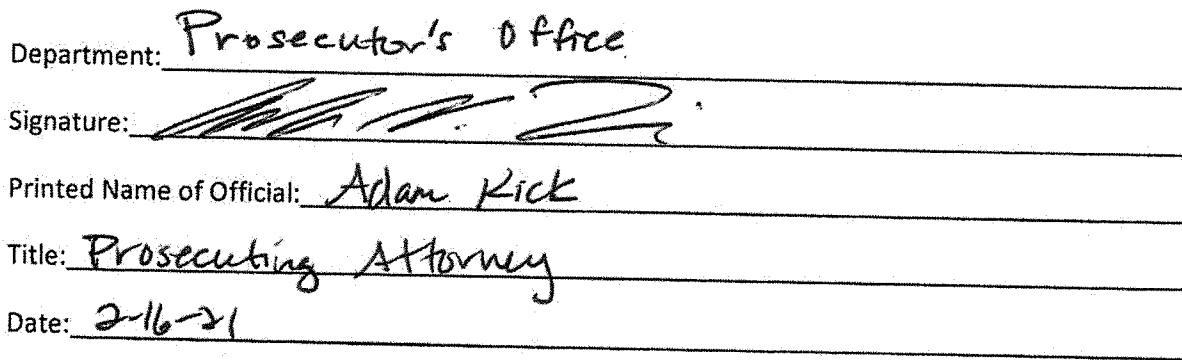 Department: Prosecutor's Office
Signature:
Printed Name of Official: Adam Kick
Title: Prosecuting Attorney
Date: 2-16-21